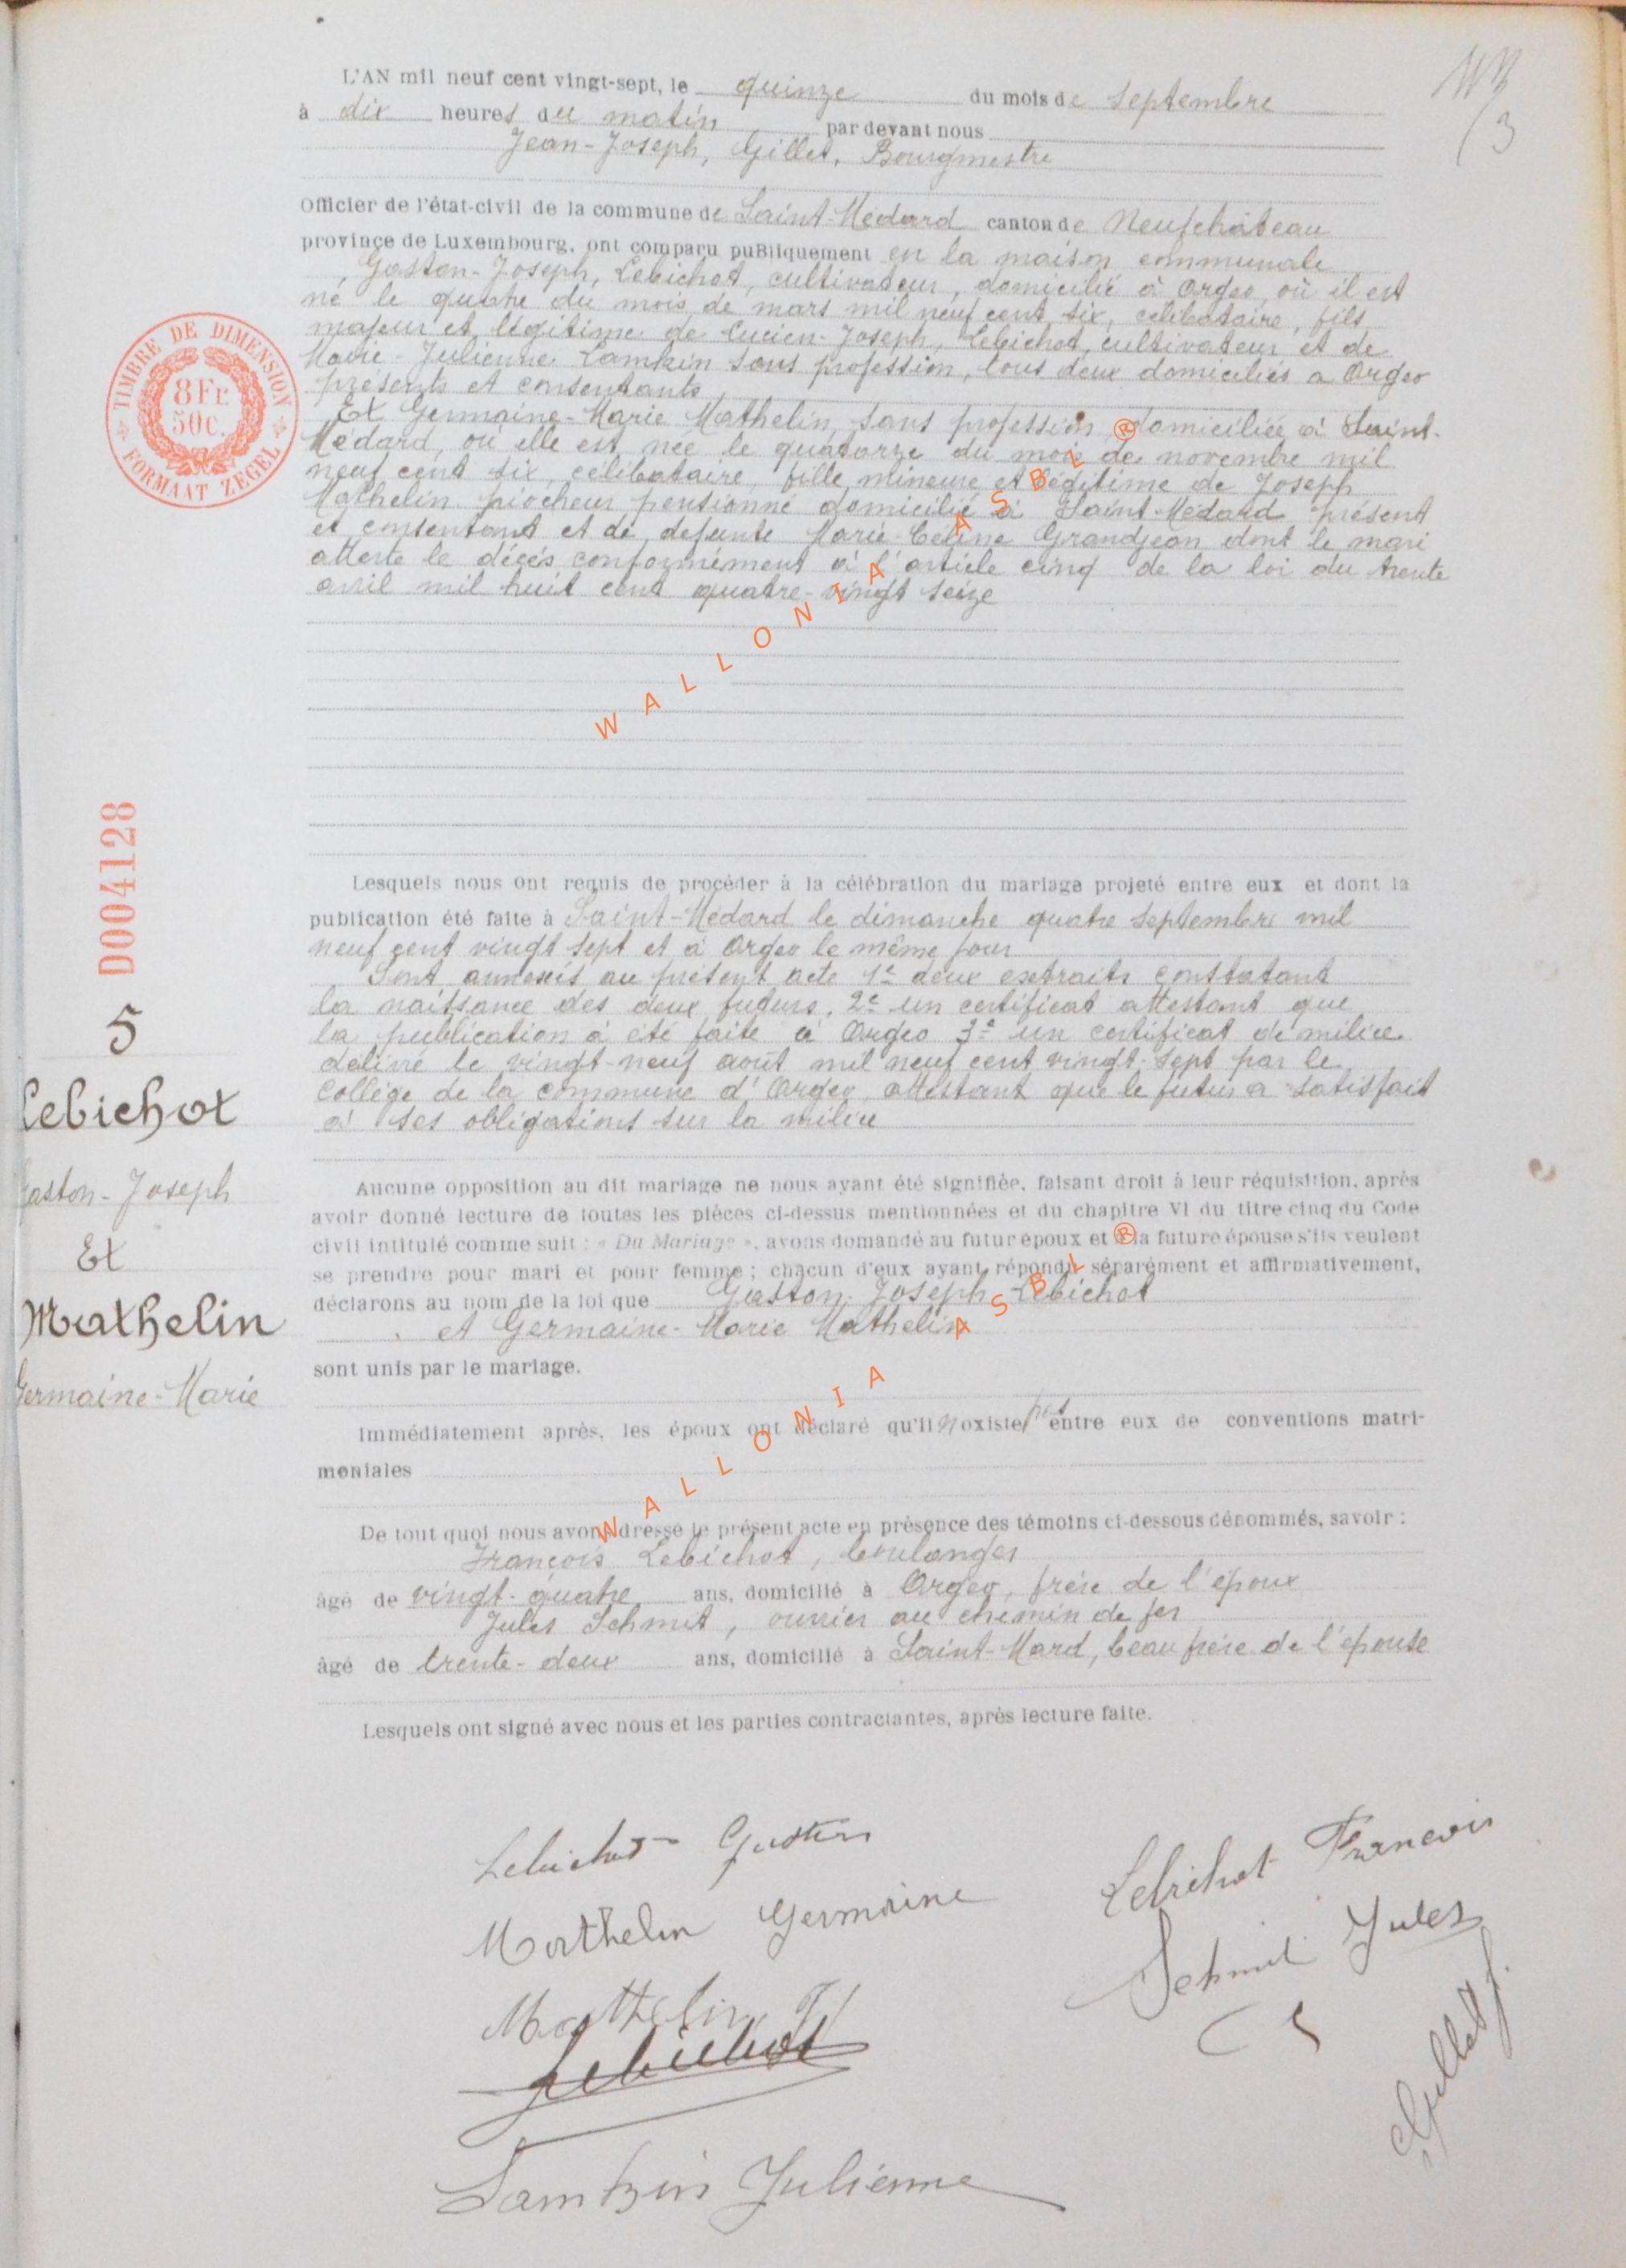 L'AN mil neuf cent vingt-sept, le quinze du mois de septembre
à dix heures du matin par devant nous
Jean-Joseph, Gillet, Bourgmestre
Officier de l'état-civil de la commune de Saint-Médard canton de Neufchâteau
province de Luxembourg, ont comparu publiquement en la maison communale
Gaston-Joseph, Lebichot, cultivateur, domicilié à Orgeo, où il est
né le quatre du mois de mars mil neuf cent six, célibataire, fils
majeur et légitime de Lucien-Joseph, Lebichot, cultivateur et de
Marie-Julienne Lamkin sans profession, tous deux domiciliés à Orgeo
présents et consentants
Et Germaine-Marie Mathelin, sans profession, domiciliée à Saint-
Médard, où elle est née le quatorze du mois de novembre mil
neuf cent six, célibataire, fille mineure et légitime de Joseph
Mathelin piocheur pensionné domicilié à Saint-Médard présent
et consentant et de defunte Marie-Céline Grandjean dont le mari
atteste le décès conformément à l'article cinq de la loi du trente
avril mil huit cent quatre-vingt seize
WALLONIA ASBL ®
TIMBRE DE DIMENSION
8 Fr.
50 c.
FORMAAT ZEGEL
D004128
Lesquels nous ont requis de procéder à la célébration du mariage projeté entre eux et dont la
publication été faite à Saint-Médard le dimanche quatre septembre mil
neuf cent vingt sept et à Orgeo le même jour
Sont annexés au présent acte 1e deux extraits constatant
la naissance des deux futurs, 2e un certificat attestant que
la publication a été faite à Orgeo 3e un certificat de milice
délivré le vingt-neuf août mil neuf cent vingt-sept par le
Collège de la commune d'Orgeo, attestant que le futur a satisfait
à ses obligations sur la milice
5
Lebichot
Gaston-Joseph
Et
Mathelin
Germaine-Marie
Aucune opposition au dit mariage ne nous ayant été signifiée, faisant droit à leur réquisition, après
avoir donné lecture de toutes les pièces ci-dessus mentionnées et du chapitre VI du titre cinq du Code
civil intitulé comme suit : « Du Mariage », avons demandé au futur époux et à la future épouse s'ils veulent
se prendre pour mari et pour femme ; chacun d'eux ayant répondu séparément et affirmativement,
déclarons au nom de la loi que Gaston-Joseph Lebichot
et Germaine-Marie Mathelin
sont unis par le mariage.
Immédiatement après, les époux ont déclaré qu'il n'existe pas entre eux de conventions matri-
moniales
De tout quoi nous avons dressé le présent acte en présence des témoins ci-dessous dénommés, savoir :
François Lebichot, boulanger
âgé de vingt-quatre ans, domicilié à Orgeo, frère de l'époux
Jules Schmit, ouvrier au chemin de fer
âgé de trente-deux ans, domicilié à Saint-Mard, beau frère de l'épouse
Lesquels ont signé avec nous et les parties contractantes, après lecture faite.
WALLONIA ASBL ®
Lebichot Gaston
Lebichot Francois
Mathelin Germaine
Schmit Jules
Mathelin J
Lebichot
Gillet J.
Lamkin Julienne